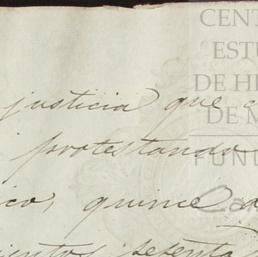 CENT
ESTU
DE H
DE M
FUND
Ca
justicia que
protestando
ico, quince d
ientos setenta